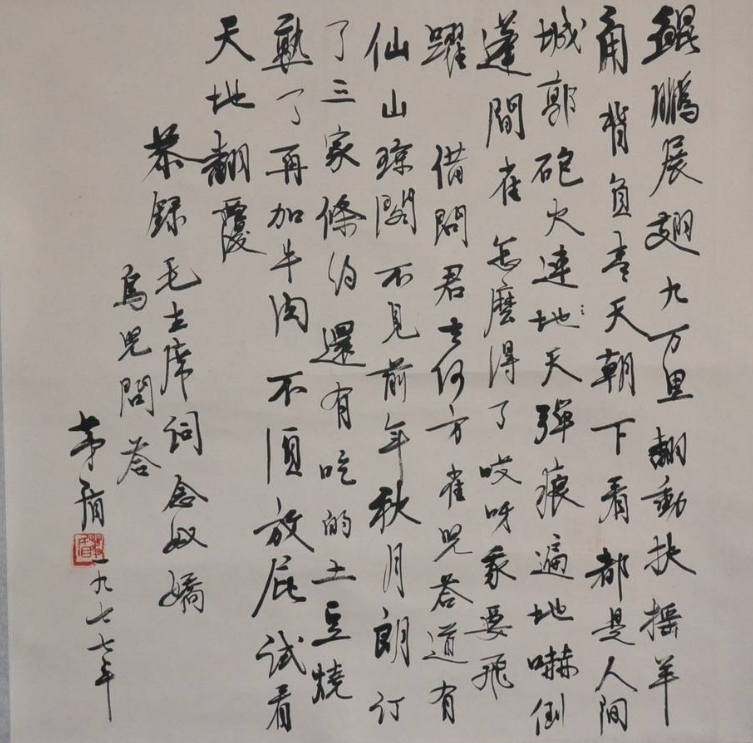 鯤鵬展翅九万里翻動扶摇羊
角背負青天朝下看都是人间
城郭砲火連地天彈痕遍地嚇倒
蓬間雀怎麼得了哎呀我要飛
躍 借問君去何方雀兒答道有
仙山琼閣不見前年秋月朗订
了三家條约還有吃的土豆燒
熟了再加牛肉不須放屁试看
天地翻覆
恭録毛主席词念奴嬌
鳥兒問答
茅盾 一九七七年